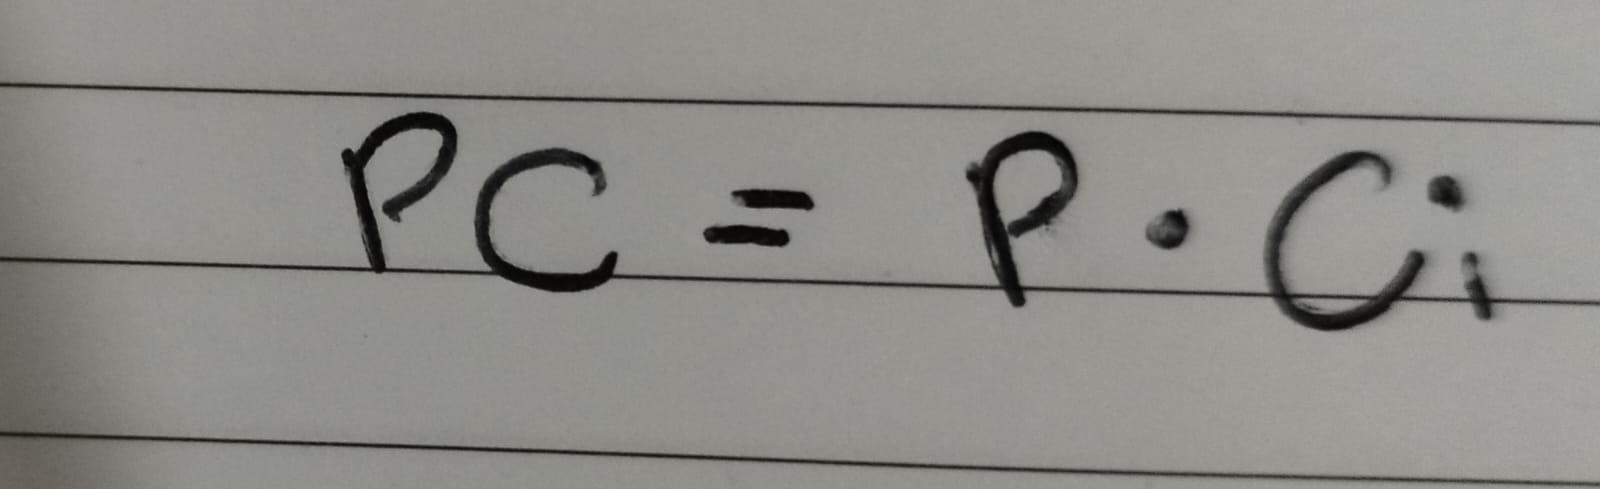 PC = P · Ci